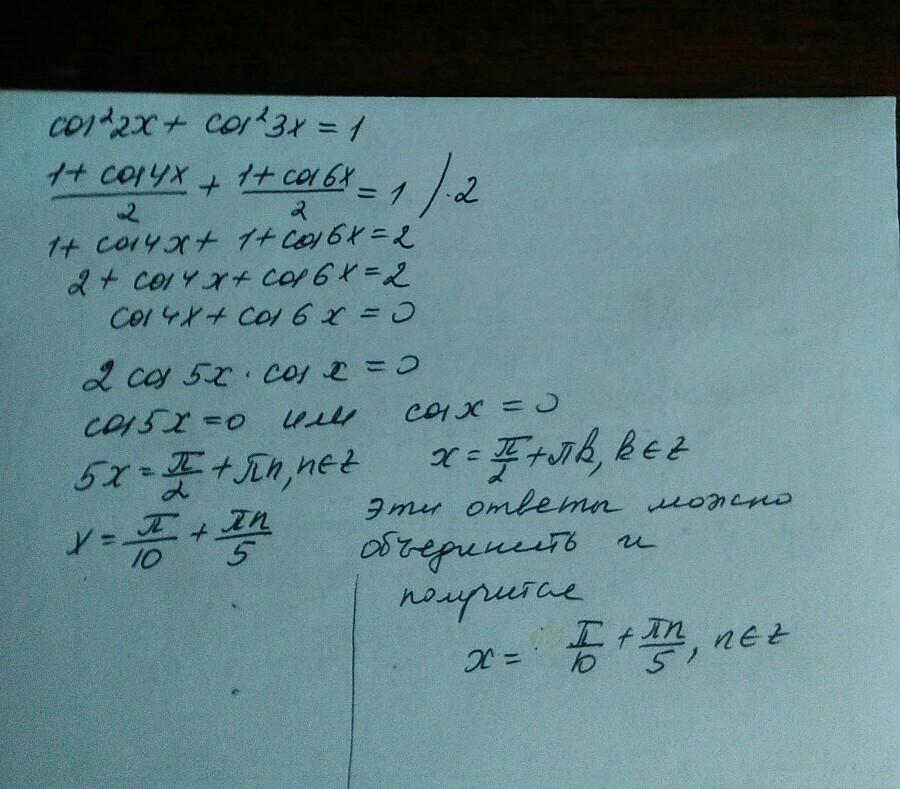 cos²2x + cos²3x = 1
(1 + cos4x)/2 + (1 + cos6x)/2 = 1 / · 2
1 + cos4x + 1 + cos6x = 2
2 + cos4x + cos6x = 2
cos4x + cos6x = 0
2 cos 5x · cos x = 0
cos5x = 0 или cosx = 0
5x = π/2 + πn, n∈z x = π/2 + πk, k∈z
x = π/10 + πn/5
Эти ответы можно
объединить и
получится
x = π/10 + πn/5, n∈z